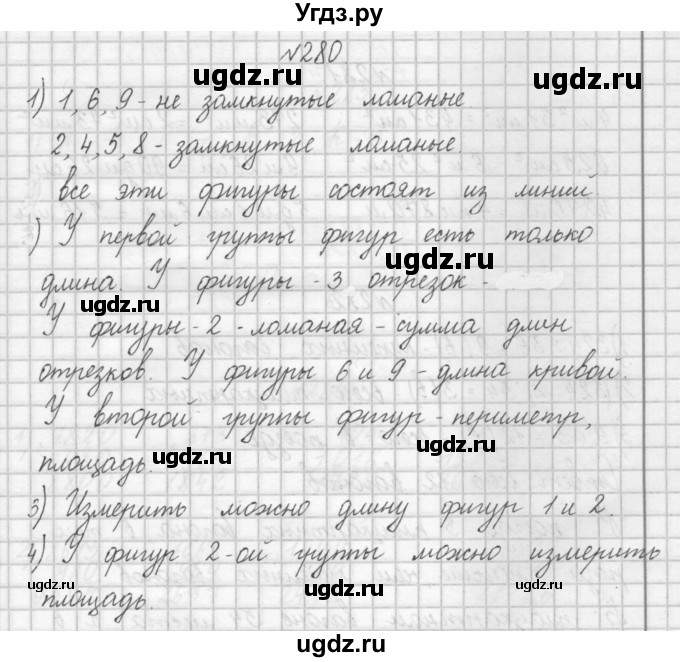 Угдз.ру
№280
ugdz.ru ugdz.ru
1) 1, 6, 9 - не замкнутые ломаные
2, 4, 5, 8 - замкнутые ломаные.
ugdz.ru
все эти фигуры состоят из линий.
) У первой группы фигур есть только
ugdz.ru
длина. У фигуры - 3 отрезок -
ugdz.ru
У фигуры - 2 - ломаная - сумма длин
отрезков. У фигуры 6 и 9 - длина кривой.
У второй группы фигур - периметр,
площадь.
ugdz.ru ugdz.ru
3) Измерить можно длину фигур 1 и 2.
4) У фигур 2-ой группы можно измерить
ugdz.ru ugdz.ru ugdz.ru
площадь.
ugdz.ru